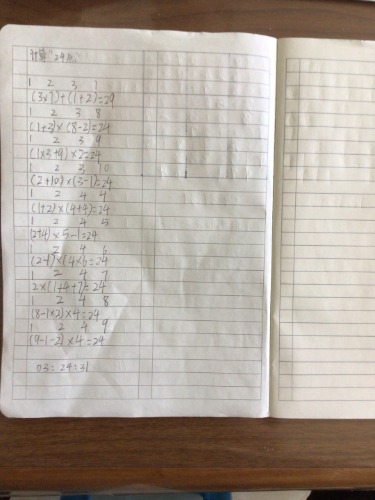 计算"24点"
1 2 3 7
(3×7)+(1+2)=24
1 2 3 8
(1+3)×(8-2)=24
1 2 3 9
(1×3+9)×2=24
1 2 3 10
(2+10)×(3-1)=24
1 2 4 4
(1+2)×(4+4)=24
1 2 4 5
(2+4)×5-1=24
1 2 4 6
(2-1)×(4×6)=24
1 2 4 7
2×(1+4+7)=24
1 2 4 8
(8-1×2)×4=24
1 2 4 9
(9-1-2)×4=24
03=24=31